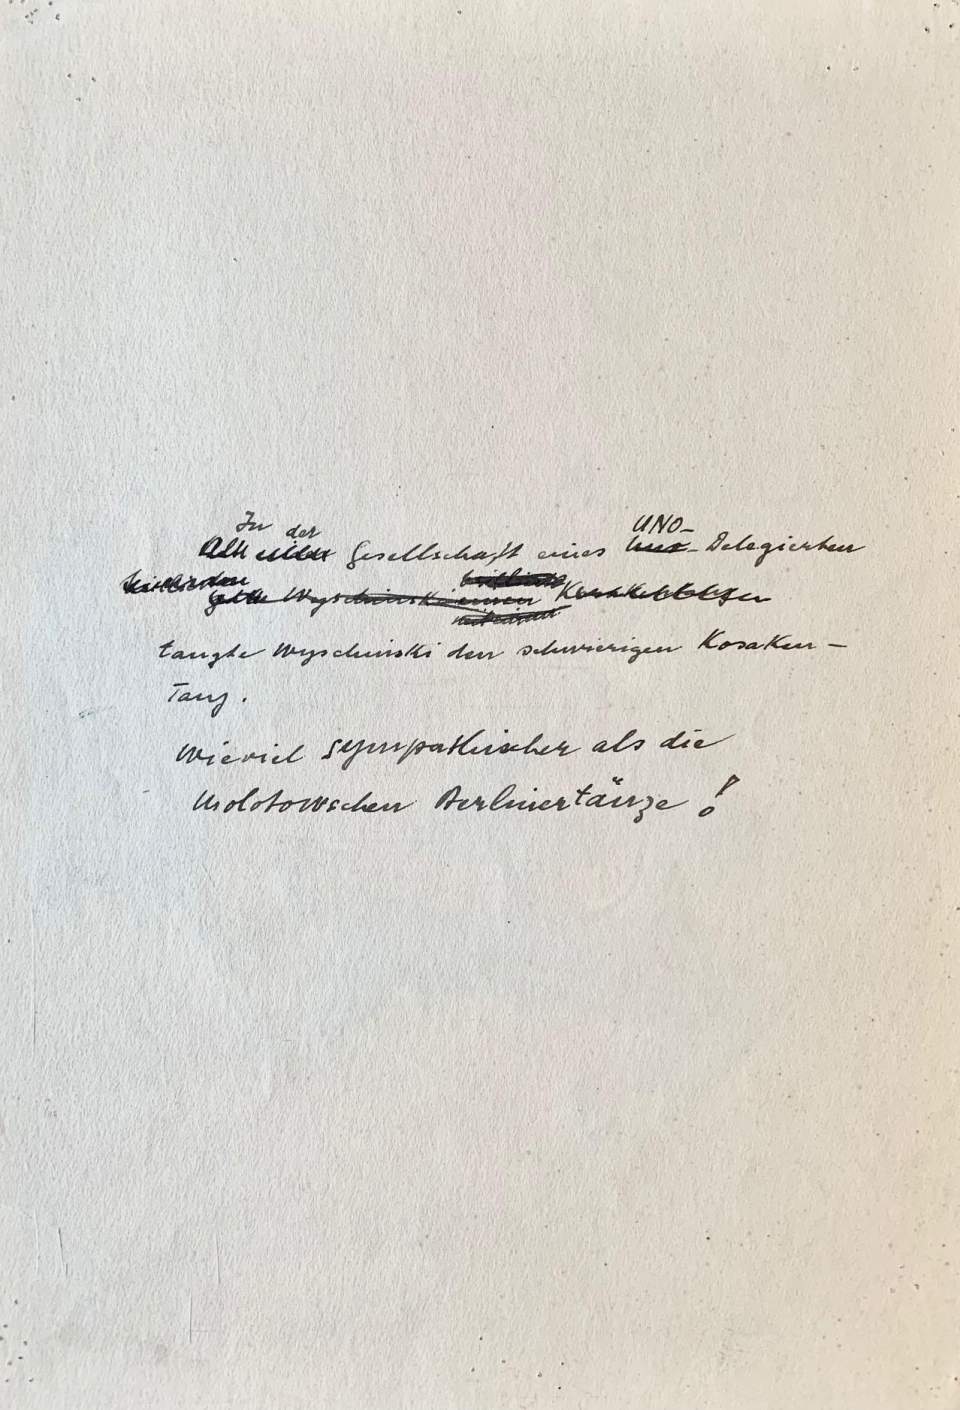 In der UNO-
Gesellschaft eines -Delegierten
Wyschinski einen
tanzte Wyschinski den schwierigen Kosaken-
Tanz.
Wieviel sympathischer als die
Molotowschen Berlinertänze!